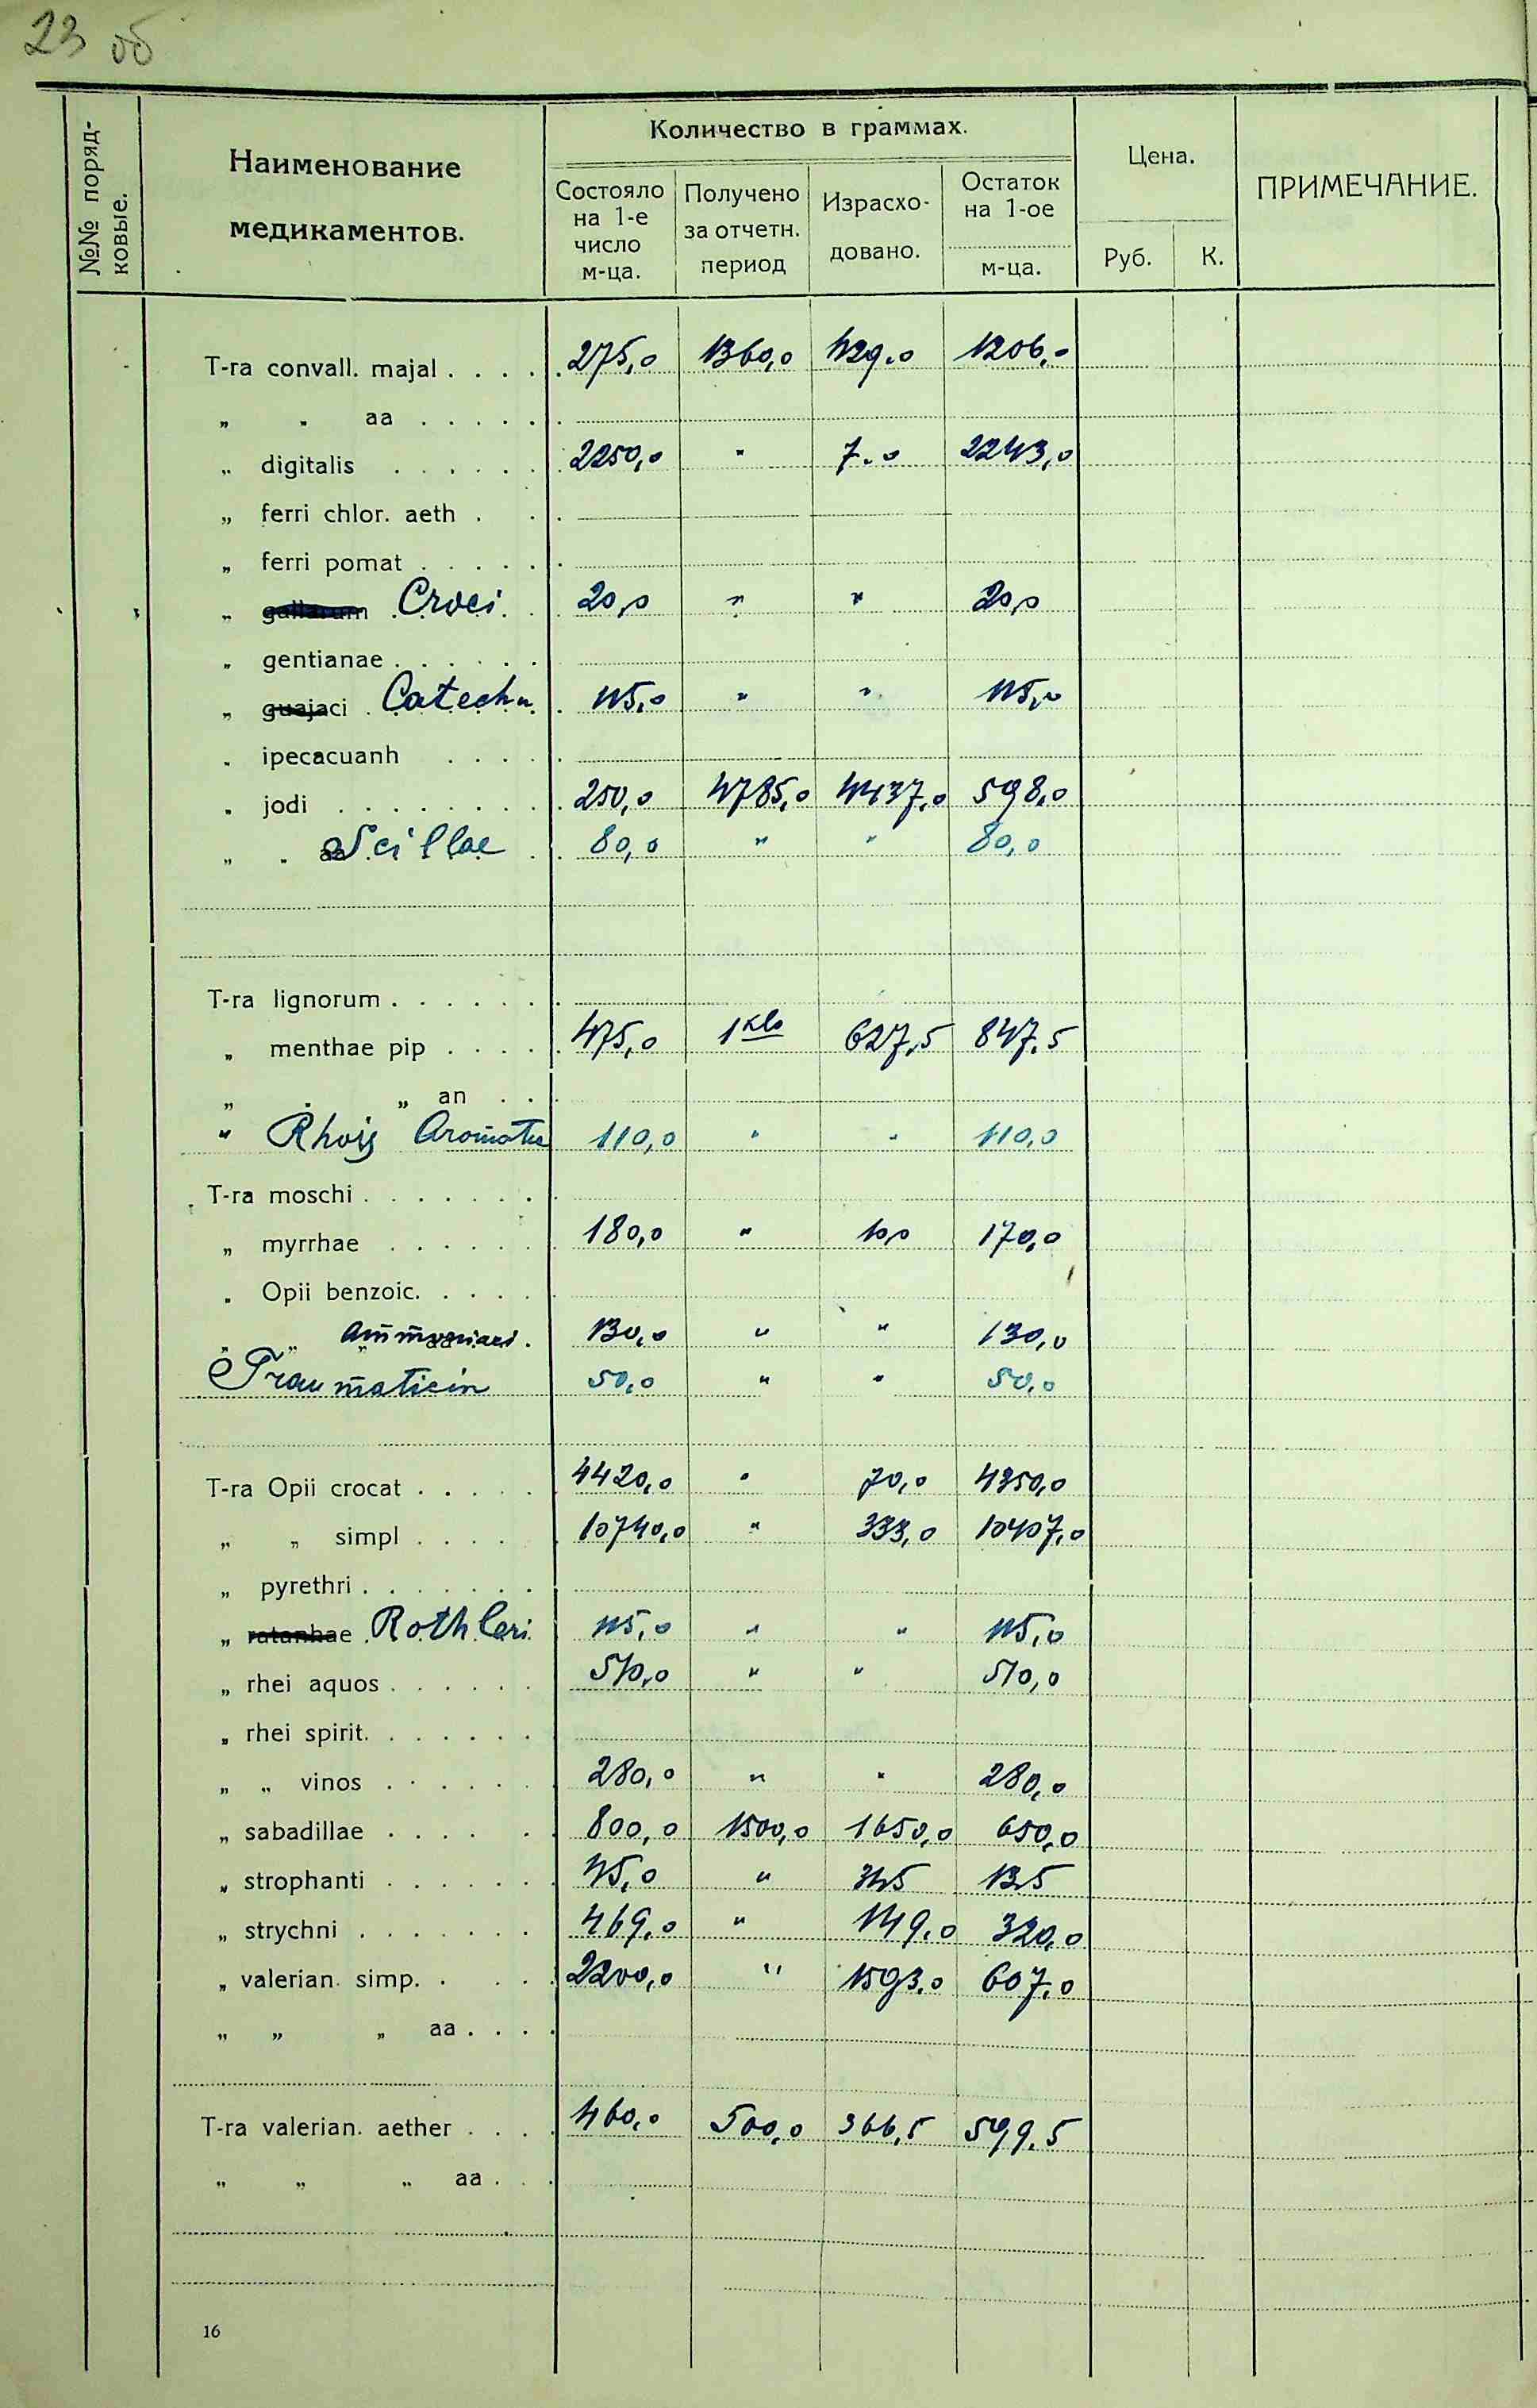 23 об
№№ поряд-
ковые.
Наименование
медикаментов.
Количество в граммах.
Состояло
на 1-е
число
м-ца.
Получено
за отчетн.
период
Израсхо-
довано.
Остаток
на 1-ое
м-ца.
Цена.
Руб. К.
ПРИМЕЧАНИЕ.
T-ra convall. majal . . . . . 275,0 1360,0 429.0 1206,0
„ „ aa . . . . . .
„ digitalis . . . . . . 2250,0 " 7.0 2243,0
„ ferri chlor. aeth . . .
„ ferri pomat . . . . . .
„ gallarum Croci . . 20,0 " " 20,0
„ gentianae . . . . . .
„ guajaci . Catechu . 115,0 " " 115,0
„ ipecacuanh . . . . .
„ jodi . . . . . . . . . 250,0 4785,0 4437,0 598,0
„ „ aa Scillae . . 80,0 " " 80,0
T-ra lignorum . . . . . . .
„ menthae pip . . . . . 475,0 1 klo 627,5 847.5
„ „ „ an . . .
" Rhois Aromatic 110,0 " " 110,0
T-ra moschi . . . . . . .
„ myrrhae . . . . . . . 180,0 " 10,0 170,0
„ Opii benzoic. . . . . .
„ „ „ Ammoniaci . 130,0 " " 130,0
Traumaticin 50,0 " " 50,0
T-ra Opii crocat . . . . . . 4420,0 " 70,0 4350,0
„ „ simpl . . . . . 10740,0 " 333,0 10407,0
„ pyrethri . . . . . . .
„ ratanhae . 115,0 " " 115,0
„ rhei aquos . . . . . . 510,0 " " 510,0
„ rhei spirit. . . . . . .
„ „ vinos . . . . . . . 280,0 " " 280,0
„ sabadillae . . . . . . 800,0 1500,0 1650,0 650,0
„ strophanti . . . . . . . 45,0 " 31,5 13,5
„ strychni . . . . . . . 469,0 " 149,0 320,0
„ valerian. simp. . . . . 2200,0 " 1593.0 607,0
„ „ „ aa . . . .
T-ra valerian. aether . . . . 460,0 500,0 366,5 599.5
„ „ „ aa . . .
16